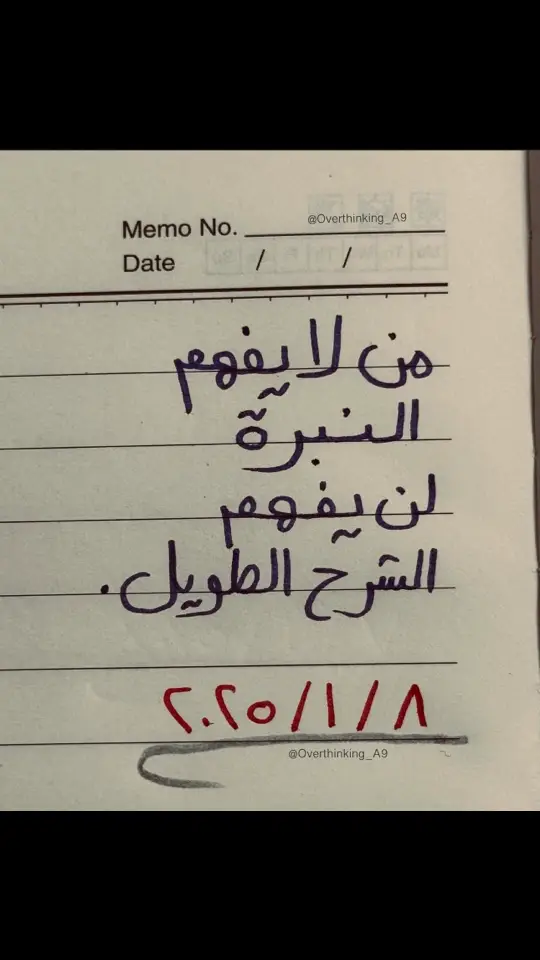 @Overthinking_A9
Memo No.
Date / /
من لا يفهم
النبرة
لن يفهم
الشرح الطويل.
٢٠٢٥/١/٨
@Overthinking_A9